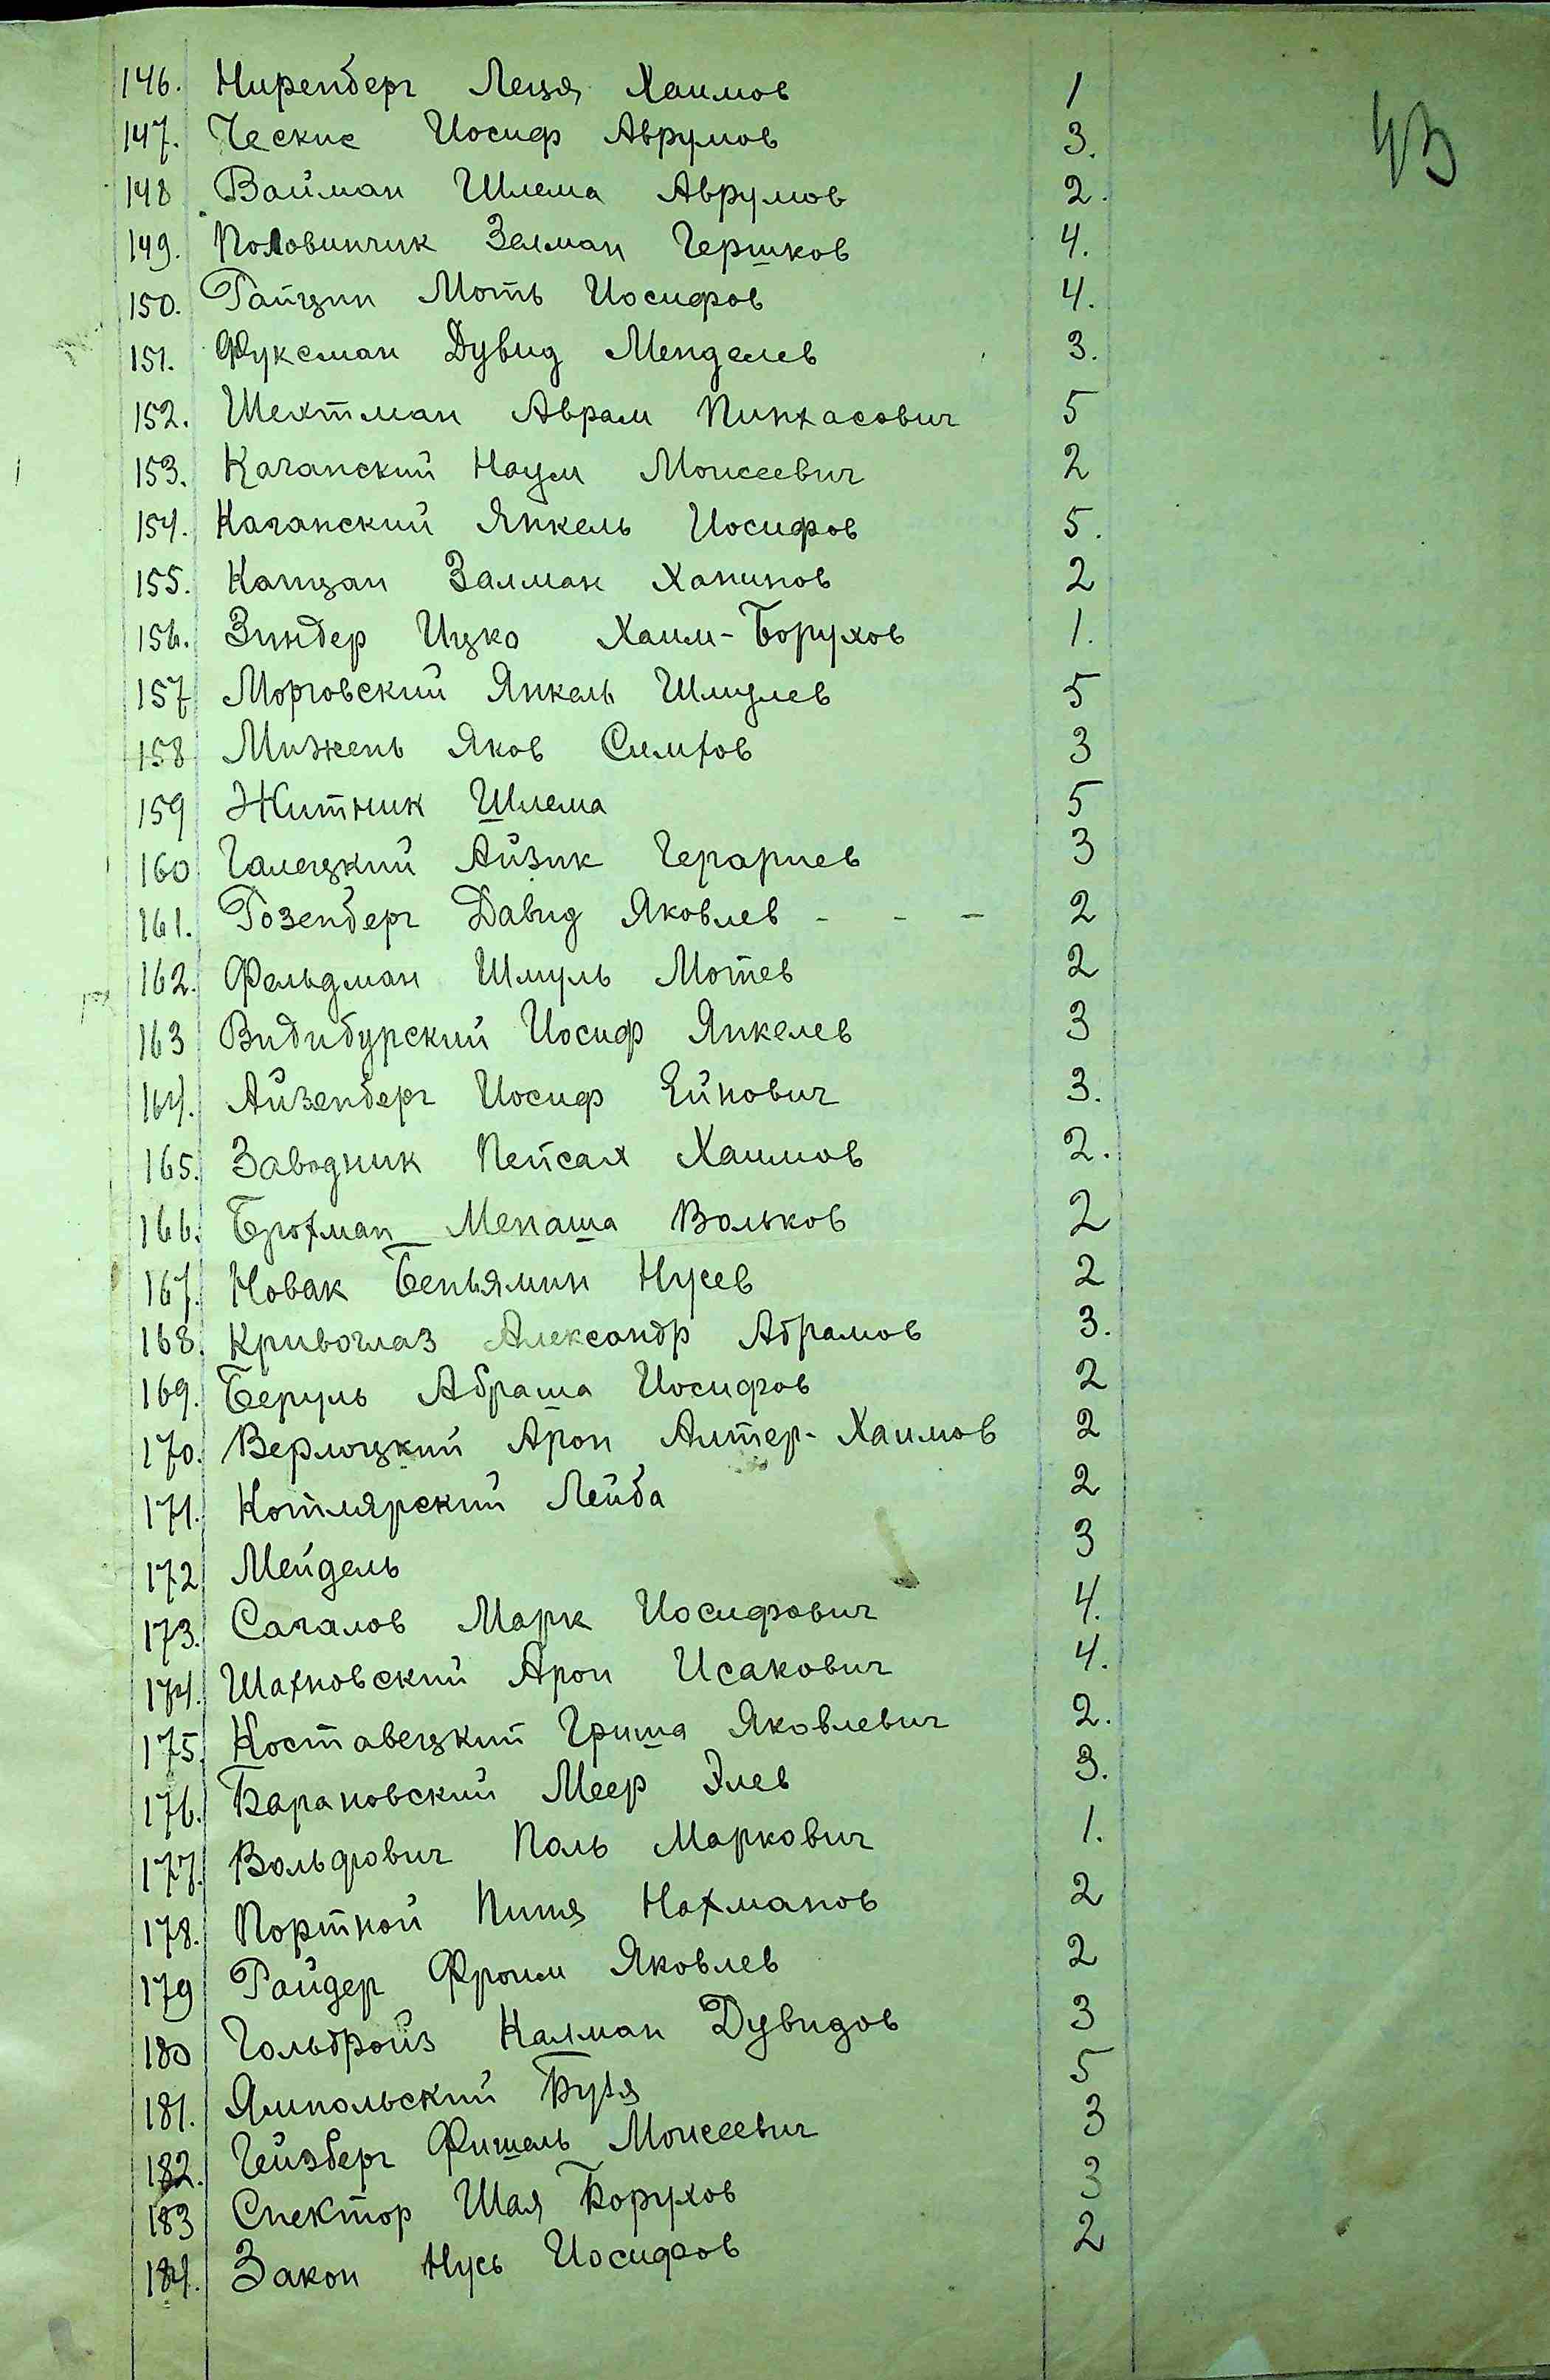 43
146. Ниренберг Леця Хаимов 1
147. Ческис Иосиф Аврумов 3.
148 Вайман Шлема Аврумов 2.
149. Половинчик Зелман Гершков 4.
150. Райцин Моть Иосифов 4.
151. Фуксман Дувид Менделев 3.
152. Шехтман Аврам Пинхасович 5
153. Каганский Наум Моисеевич 2
154. Каганский Янкель Иосифов 5.
155. Капцан Залман Ханинов 2
156. Зиндер Ицко Хаим-Борухов 1.
157 Морговский Янкель Шмулев 5
158 Мижень Яков Симхов 3
159 Житник Шлема 5
160 Галецкий Айзик Герариев 3
161. Розенберг Давид Яковлев - - - 2
162. Фельдман Шмуль Мотев 2
163 Видибурский Иосиф Янкелев 3
164. Айзенберг Иосиф Ейнович 3.
165. Заводник Пейсах Хаимов 2.
166. Брохман Менаша Вольков 2
167. Новак Беньямин Нусев 2
168. Кривоглаз Александр Абрамов 3.
169. Беруль Абраша Иосифов 2
170. Верлоцкий Арон Алтер-Хаимов 2
171. Котлярский Лейба 2
172 Мейдель 3
173. Сагалов Марк Иосифович 4.
174. Шахновский Арон Исакович 4.
175. Коставецкий Гриша Яковлевич 2.
176. Барановский Меер Элев 3.
177. Вольфович Поль Маркович 1.
178. Портной Пиня Нахманов 2
179 Райдер Фроим Яковлев 2
180 Гольдройз Калман Дувидов 3
181. Ямпольский Бузя 5
182. Гейзберг Фишель Моисеевич 3
183 Спектор Шая Борухов 3
184. Закон Нусь Иосифов 2